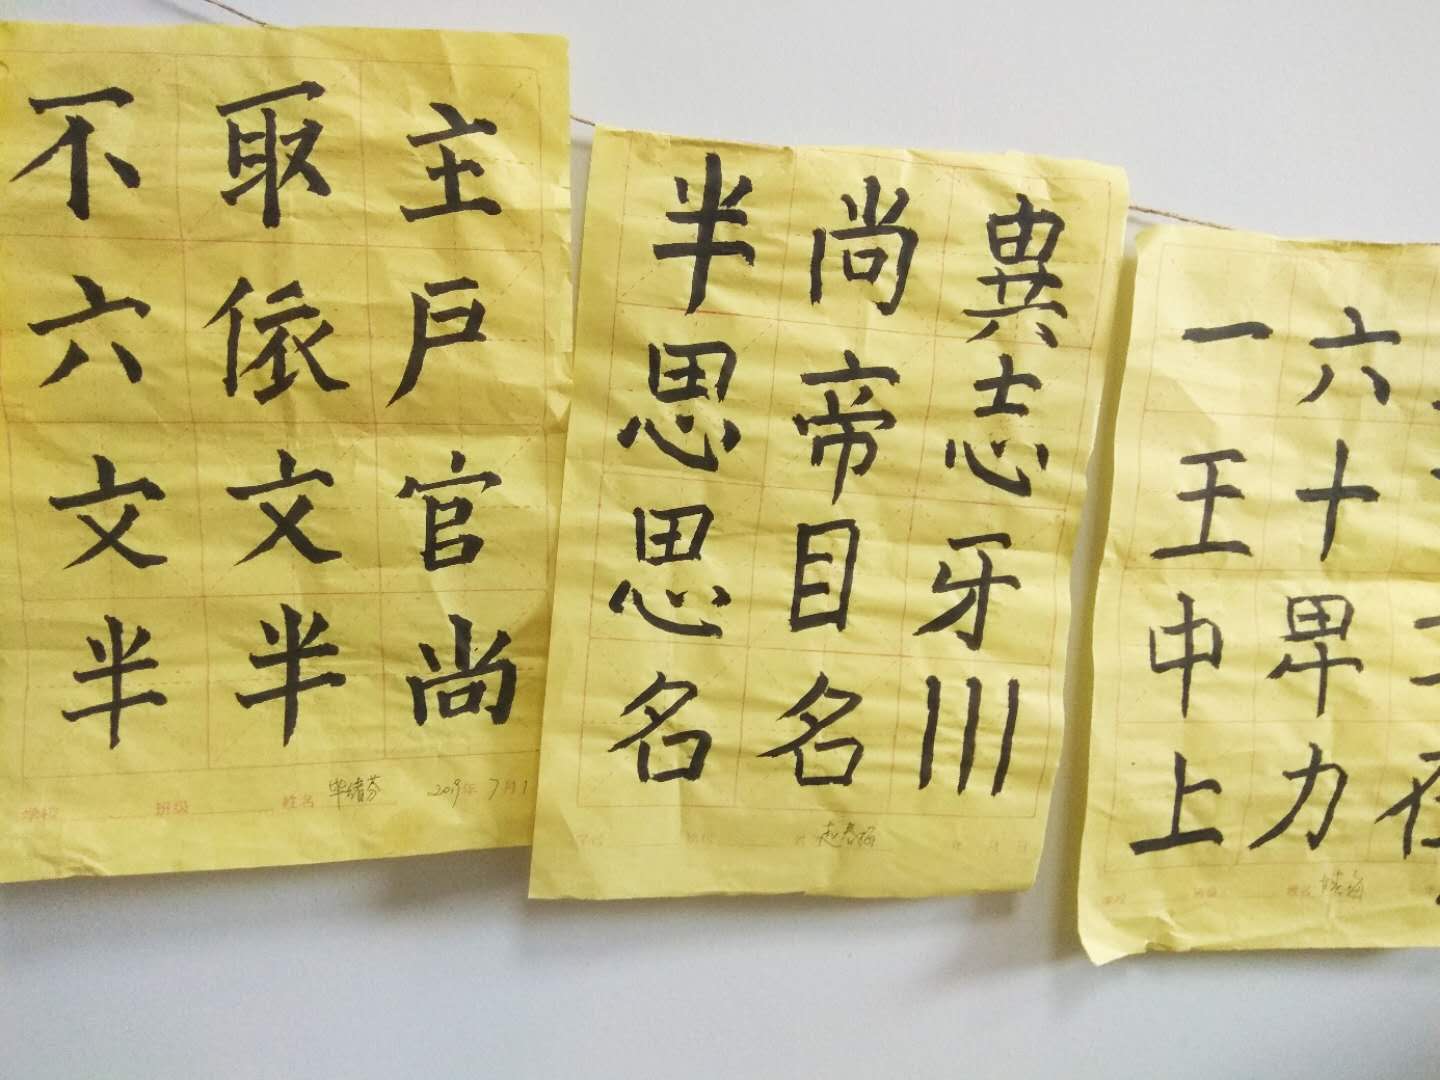 主户官尚
取依文半
不六文半
学校 班级 姓名 毕绪芬 2019年7月1
異志牙川
尚帝目名
半思思名
赵春梅 年 月 日
六十卑力
一王中上
学校 班级 姓名